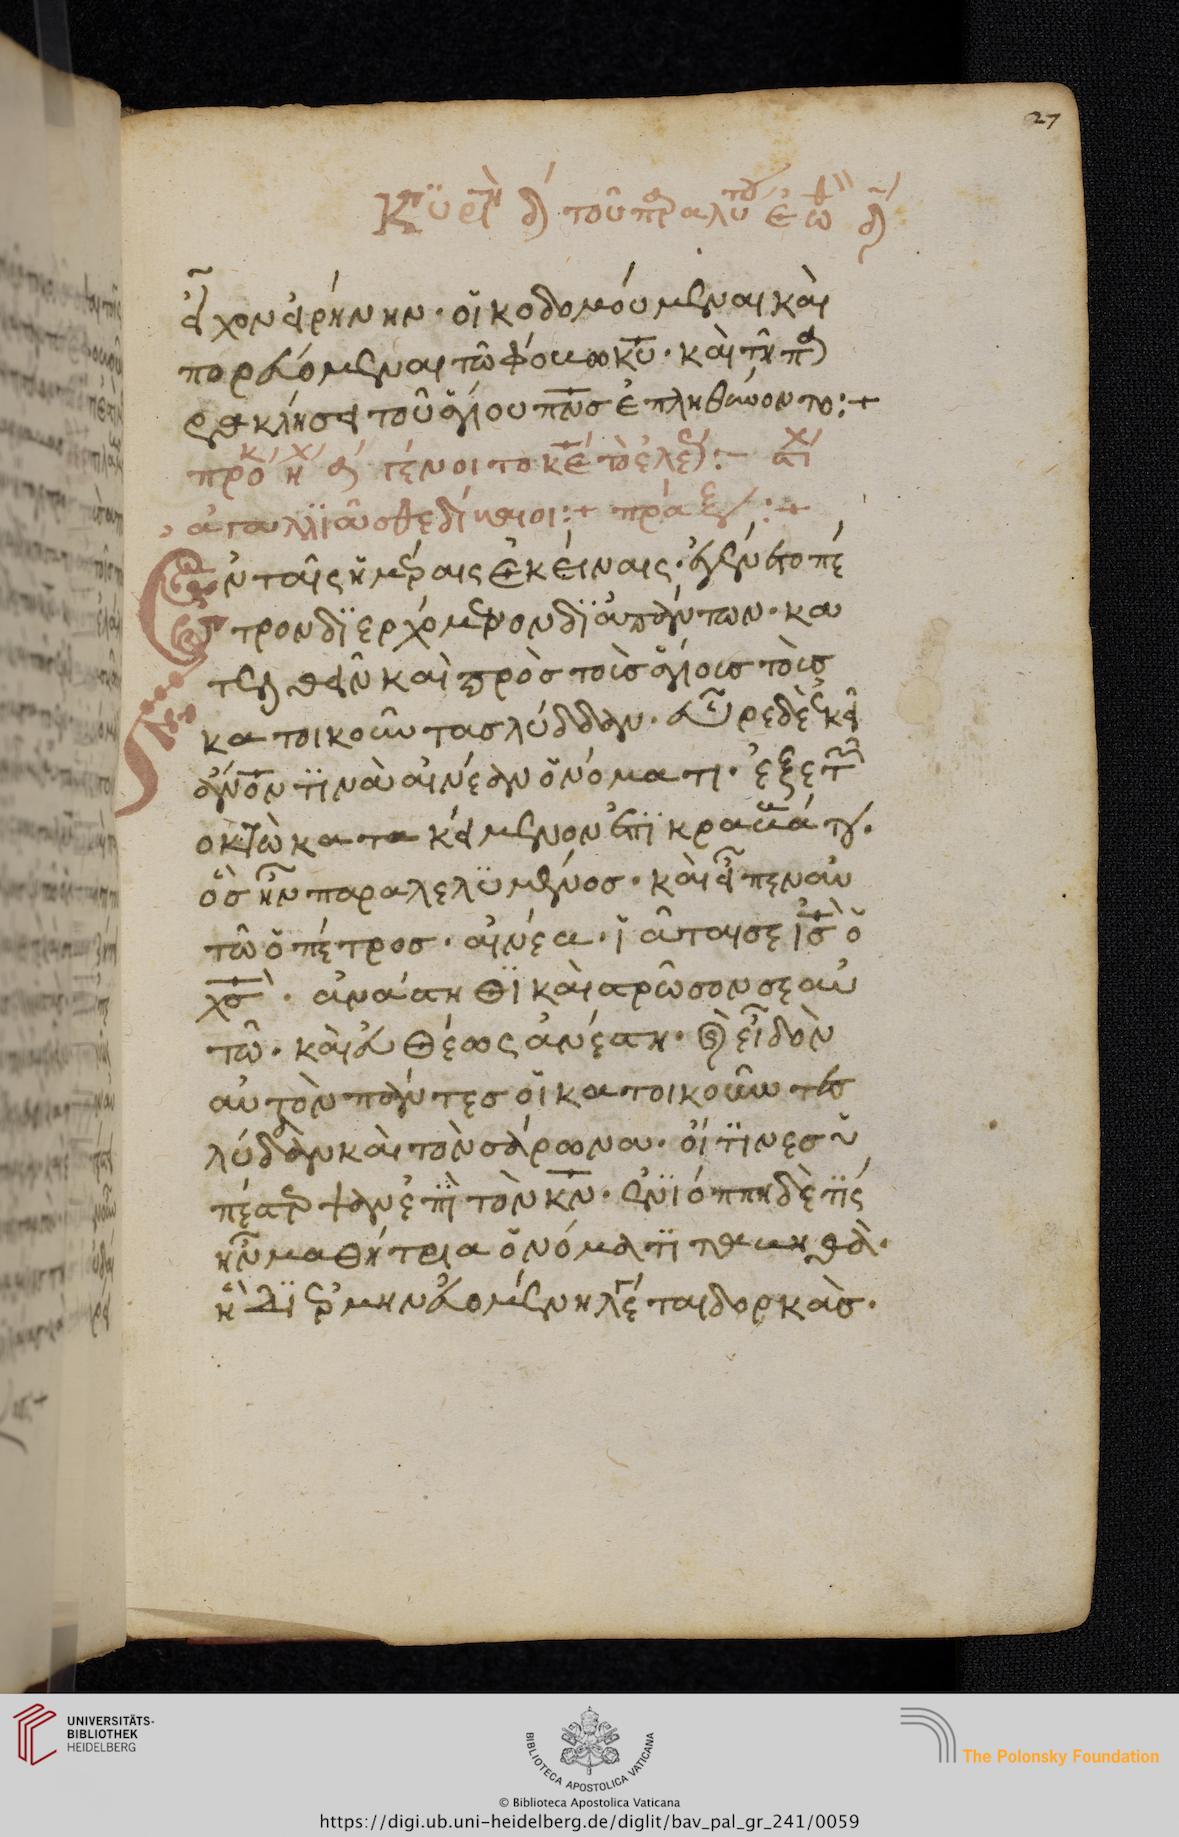 27
Κυριακη δ τοῦ παραλύτου
εἶχον εἰρήνην· οἰκοδομούμεναι καὶ
πορευόμεναι τῶ φόβω κ̅υ̅· καὶ τῆ πα
ρακλήσει τοῦ ἁγίου π̅ν̅σ̅ ἐπληθύνοντο:+
προκ ηχ γένοιτο κ̅ε̅ τὸ ἔλεος:–
ἀγαλλιᾶσθε δίκαιοι:+ πράξ:+
Ἐν ταῖς ἡμέραις ἐκείναις· ἐγένετο πέ
τρον διερχόμενον διὰ πάντων· κα
τελθεῖν καὶ πρὸσ τοὺσ ἁγίουσ τοὺσ
κατοικοῦντασ λύδδαν· εὗρε δὲ ἐκεῖ
ἄ̅ν̅ο̅ν̅ τινὰ αἰνέαν ὀνόματι· ἐξ ἐτῶν
ὀκτὼ κατακείμενον ἐπὶ κραβάτου·
ὃσ ἦν παραλελυμένοσ· καὶ εἶπεν αὐ
τῶ ὁ πέτροσ· αἰνέα· ἰᾶται σε ἰ̅σ̅ ὁ
χ̅σ̅· ἀνάστηθι καὶ στρῶσον σεαυ
τῶ· καὶ εὐθέως ἀνέστη· καὶ εἶδον
αὐτὸν πάντεσ οἱ κατοικοῦντεσ
λύδδαν καὶ τὸν σάρωνα· οἵτινεσ ἐ
πέστρεψαν ἐπὶ τὸν κ̅ν̅· ἐν ἰόππη δὲ τίς
ἦν μαθήτρια ὀνόματι ταβηθά·
ἣ διερμηνευομένη λέγεται δορκάσ·
UNIVERSITÄTS-
BIBLIOTHEK
HEIDELBERG
BIBLIOTECA APOSTOLICA VATICANA
The Polonsky Foundation
© Biblioteca Apostolica Vaticana
https://digi.ub.uni-heidelberg.de/diglit/bav_pal_gr_241/0059